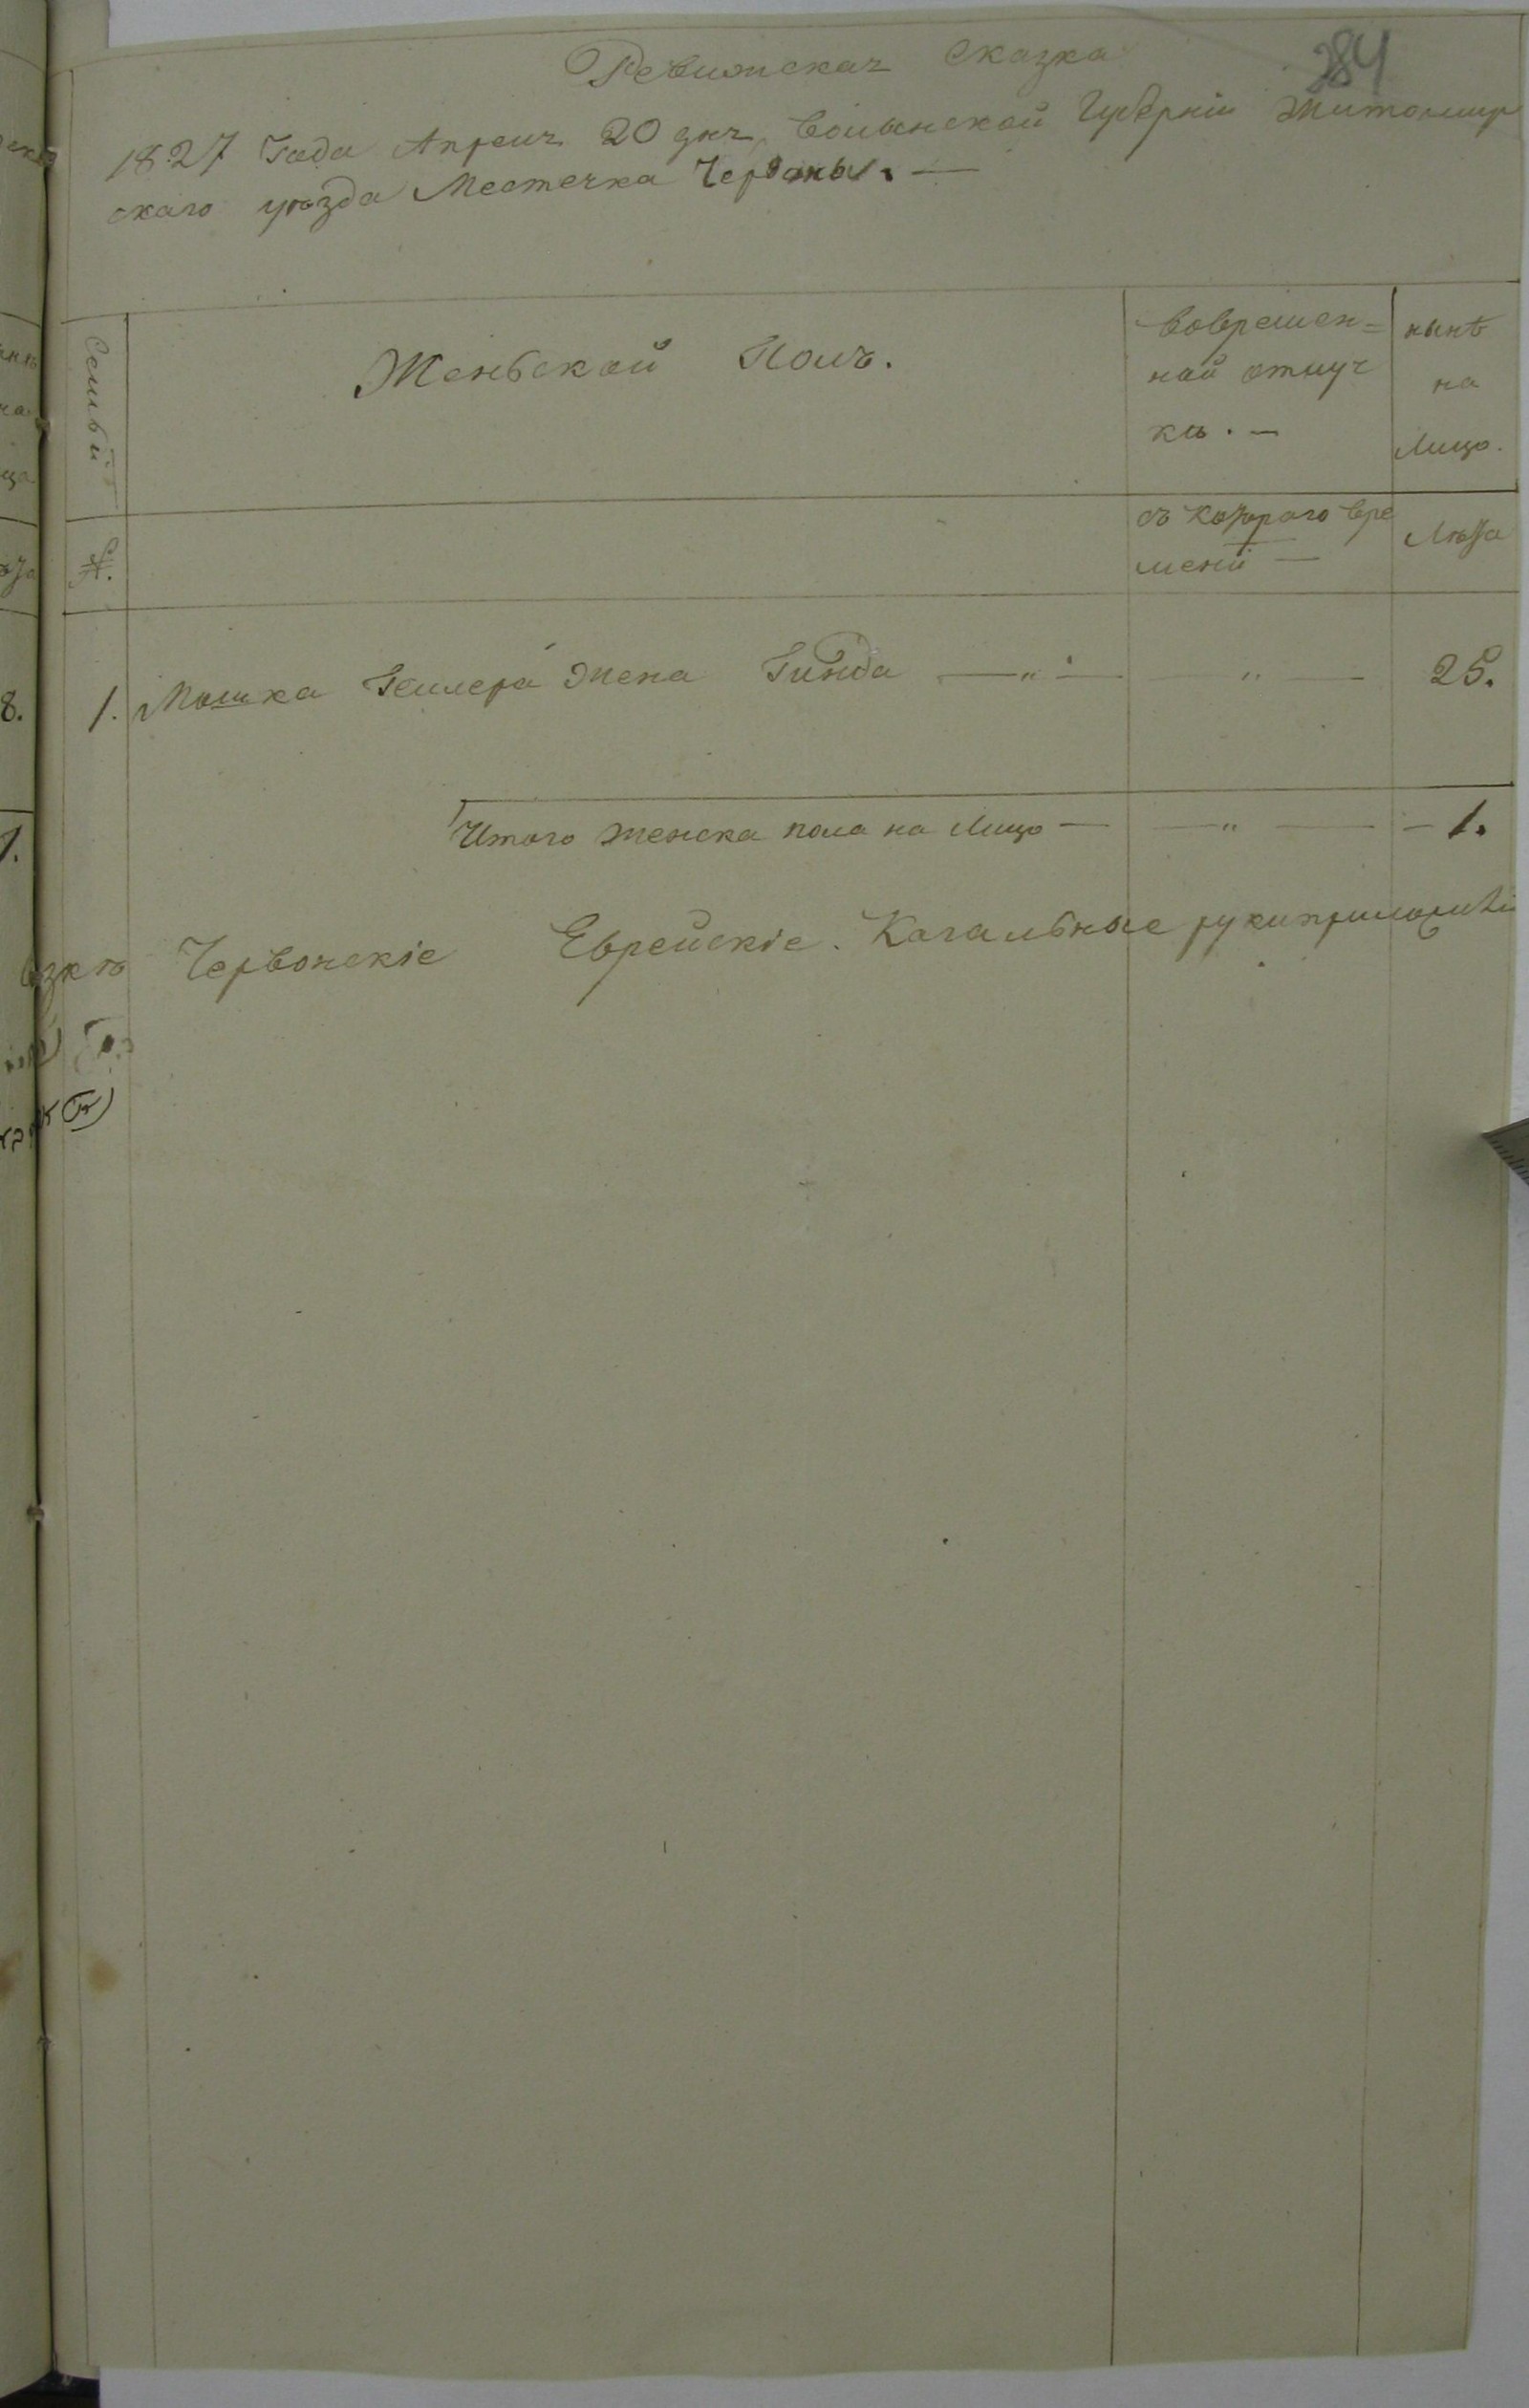 284
Ревижская Сказка
1827 Года Апреля 20 дня, Волынской Губерніи Житомир
скаго уѣзда Местечка Червоны. —
Семьи
Женьской Полъ.
вовремен=
ной отлуч
кѣ. —
нынѣ
на
Лицо.
№.
съ котораго вре
мени —
Лѣта
1. Мошка Геллера жена Гинда — " — — " — 25.
Итого женска пола на Лицо — — " — — 1.
Червонскіе Еврейскіе Кагальные